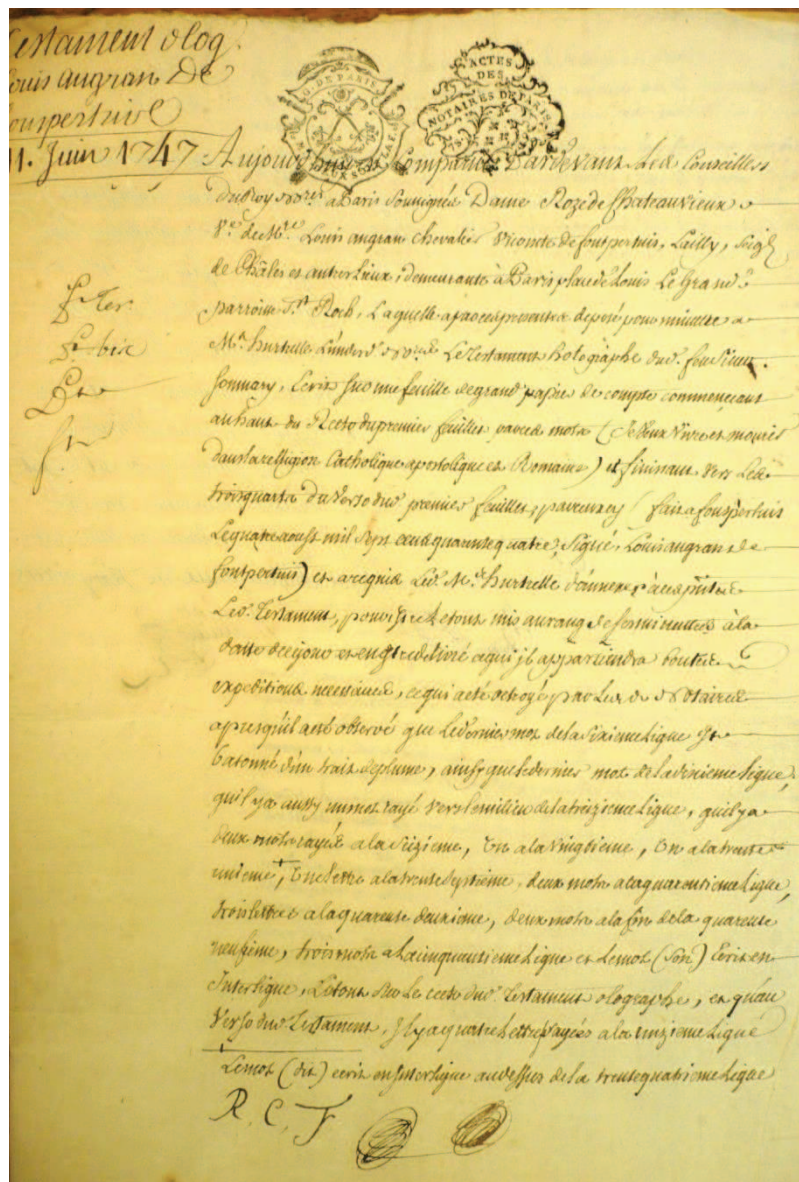 Testament olog.
Louis angran De
fonspertuis
11. Juin 1747
G. DE PARIS
ACTES
DES
NOTAIRES DE PARIS
Aujourd'huy est Comparue Pardevant Les Conseillers
du Roy Nores à Paris Soussignés Dame Roze de Chateauvieux
Ve. de Mre. Louis angran chevalier Vicomte de fontpertuis, Lailly, Seigr
de Châles et autres Lieux, demeurante à Paris place de Louis Le Grand
parroisse St. Roch, Laquelle a par ces presentes deposé pour minutte a
Me. hurtrelle L'un des d. Nores Le Testament holographe dud. feu Sieur
son mary, Ecrit sur une feuille de grand papier de compte commençant
au haut du Recto du premier feuillet par ces mots (Je veux Vivre et mourir
dans la relligion Catholique apostolique et Romaine) et finissant vers Les
trois quarts du Verso dud. premier feuillet, par ces mots (fait a fonspertuis
Le quatre aoust mil sept cens quarente quatre, Signé, Louis angran de
fontpertuis) et a requis Led. Me. hurtrelle d'annexer à ces pntes
Led. Testament, pour Estre Le tout mis au rang de ses minuttes à la
datte de ce jour et en Estre delivré a qui il appartiendra toutes
expeditions necessaires, ce qui a eté octroyé par Les d. Notaires
apres qu'il a eté observé que Le dernier mot de la Sixieme Ligne Est
batonné d'un trait de plume, ainsy que le dernier mot de la dixieme Ligne,
qu'il y a aussy un mot rayé vers le milieu de la treizieme Ligne, qu'il y a
deux mots rayés a la Seizieme, Un a la Vingtieme, Un a la trente
unieme, Une lettre a la trente Septieme, deux mots a la quarantieme Ligne,
trois lettres a la quarente deuxieme, deux mots a la fin de la quarente
neufieme, trois mots a La cinquantieme Ligne et Le mot (Son) Ecrit en
Interligne, Le tout Sur Le recto dud. Testament olographe, et qu'au
Verso dud. Testament, Il y a quatre Lettres rayées a la onzieme Ligne
Le mot (dit) ecrit en Interligne au dessus de la trente quatrieme Ligne
R. C. F